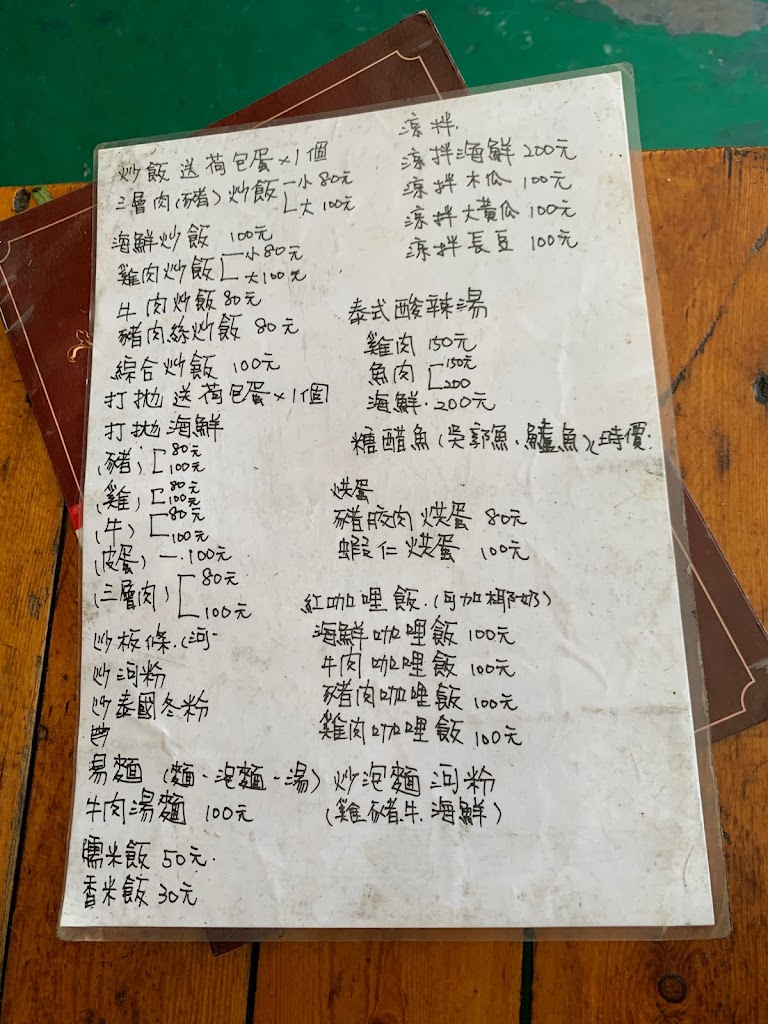 炒飯 送荷包蛋×1個
三層肉(豬)炒飯 小 80元
大 100元
海鮮炒飯 100元
雞肉炒飯 小80元
大100元
牛肉炒飯80元
豬肉絲炒飯 80元
綜合炒飯 100元
打拋 送荷包蛋×1個
打拋海鮮
(豬) 80元
100元
(雞) 80元
100元
(牛) 80元
100元
(皮蛋) 100元
(三層肉) 80元
100元
炒板條.(河
炒河粉
炒泰國冬粉
易麵 (麵-泡麵-湯)
牛肉湯麵 100元
糯米飯 50元.
香米飯 30元
涼拌.
涼拌海鮮 200元
涼拌木瓜 100元
涼拌大黃瓜 100元
涼拌長豆 100元
泰式酸辣湯
雞肉 150元
魚肉 150元
200
海鮮.200元
糖醋魚(吳郭魚.鱸魚)時價.
烘蛋
豬肉烘蛋 80元
蝦仁烘蛋 100元
紅咖哩飯.(可加椰奶)
海鮮咖哩飯 100元
牛肉咖哩飯 100元
豬肉咖哩飯 100元
雞肉咖哩飯 100元
炒泡麵河粉
(雞.豬.牛.海鮮)